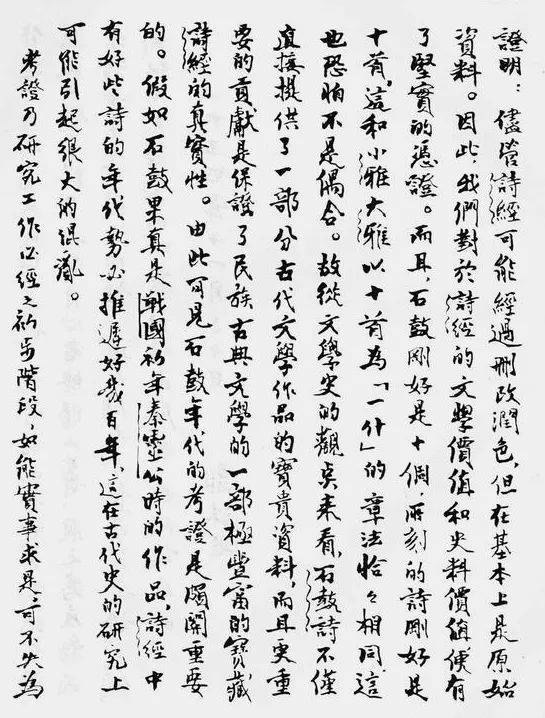 證明：儘管詩經可能經過刪改潤色，但在基本上是原始
資料。因此，我們對於詩經的文學價值和史料價值便有
了堅實的憑證。而且，石鼓剛好是十個，所刻的詩剛好是
十首，這和小雅大雅以十首為「一什」的章法恰々相同，這
也恐怕不是偶合。故從文學史的觀点来看，石鼓詩不僅
直接提供了一部分古代文學作品的寶貴資料，而且更重
要的貢獻是保證了民族古典文學的一部極豐富的寶藏
詩經的真實性。由此可見石鼓年代的考證是頗關重要
的。假如石鼓果真是戰國初年秦靈公時的作品，詩經中
有好些詩的年代勢必推遲好幾百年，這在古代史的研究上
可能引起很大的混亂。
考證乃研究工作必經之初步階段，如能實事求是，可不失為